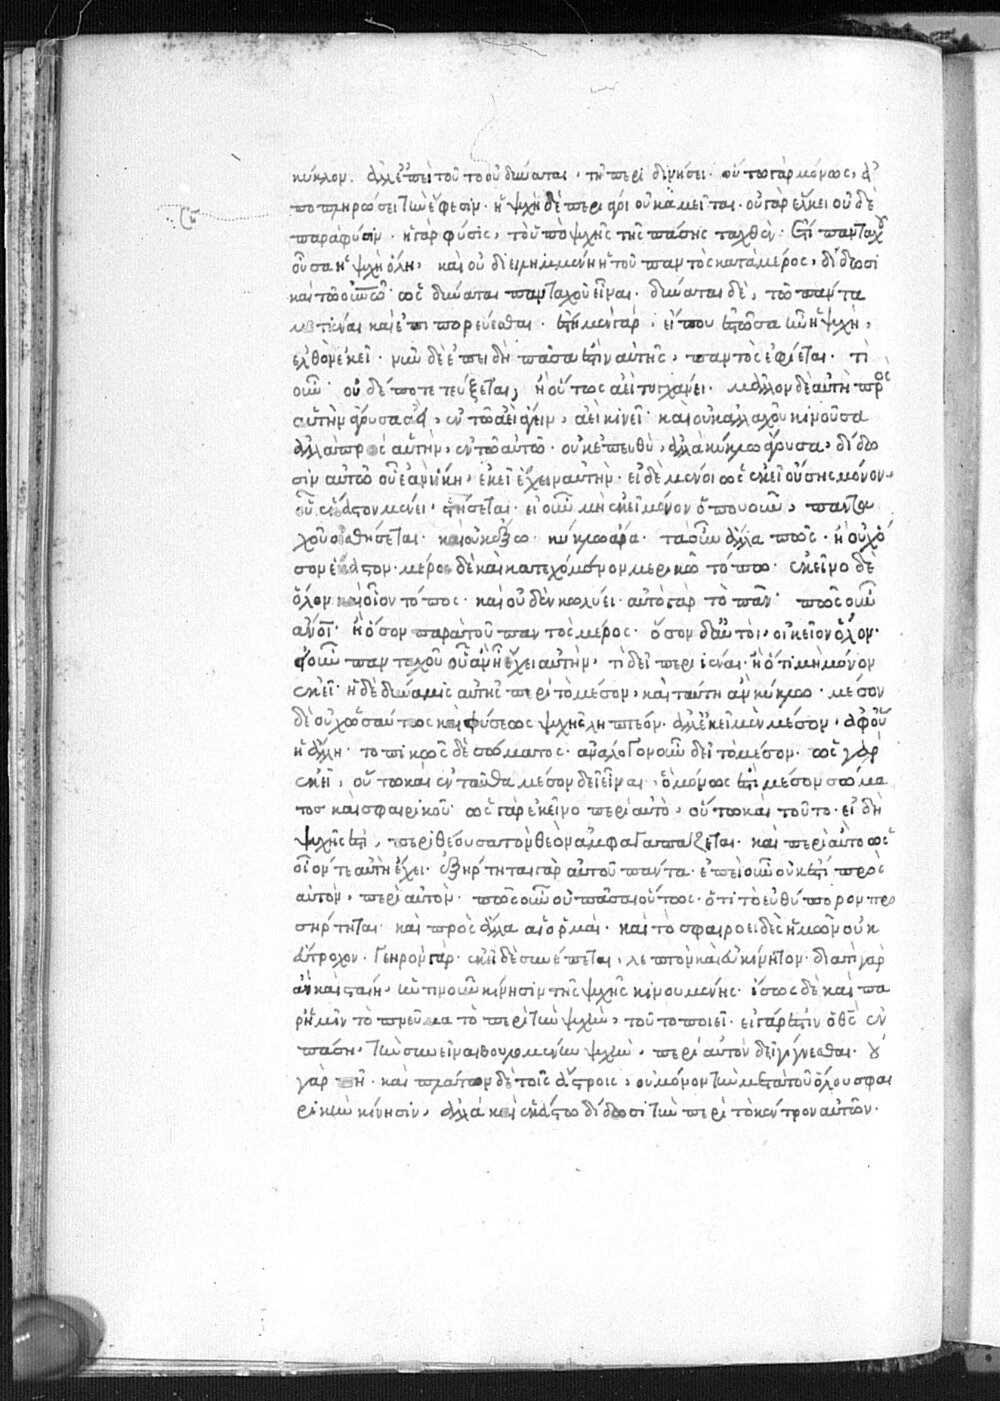 κύκλον. ἀλλ' ἐπεὶ τοῦτο οὐ δύναται, τῇ περιδινήσει· οὕτω γὰρ μόνως, ἀ
ποπληρώσει τὴν ἔφεσιν· ἡ ψυχὴ δὲ περιάγει οὐ κάμει τας· οὐ γὰρ ἕλκει οὐδὲ
παρὰ φύσιν· ἡ γὰρ φύσις, τὸ ὑπὸ ψυχῆς τῆς πάσης ταχθέν· ἔτι πανταχοῦ
οὖσα ἡ ψυχὴ ὅλη, καὶ οὐ διειλημμένη ἡ τοῦ παντὸς κατὰ μέρος, δίδωσι
καὶ τῷ οὐρανῷ· ὡς δύναται πανταχοῦ εἶναι· δύναται δὲ, τῷ πάντα
μετιέναι καὶ ἐπιπορεύεσθαι· ἔστη μὲν γὰρ, εἴ που ἑστῶσα ἦν ἡ ψυχὴ,
ἐλθὸν ἐκεῖ· νῦν δὲ ἐπειδὴ πᾶσα ἐστὶν αὐτῆς, παντὸς ἐφίεται· τί
οὖν· οὐδέποτε τεύξεται; ἢ οὕτως ἀεὶ τυγχάνει· μᾶλλον δὲ αὐτὴ πρὸς
αὑτὴν ἄγουσα ἀεὶ, ἐν τῷ ἀεὶ ἄγειν, ἀεὶ κινεῖ· καὶ οὐκ ἀλλαχοῦ κινοῦσα
ἀλλὰ πρὸς αὑτὴν, ἐν τῷ αὐτῷ· οὐκ ἐπ' εὐθὺ, ἀλλὰ κύκλῳ ἄγουσα, δίδω
σιν αὐτῷ οὗ ἐὰν ἥκῃ, ἐκεῖ ἔχειν αὐτήν· εἰ δὲ μένοι ὡς ἐκεῖ οὔσης μόνον,
οὗ ἕκαστον μένει· στήσεται· εἰ οὖν μὴ ἐκεῖ μόνον ὅπου οὖν, πανταχοῦ
χοῦ οἰσθήσεται· καὶ οὐκ ἔξω· κύκλῳ ἄρα· τὰ οὖν ἄλλα πῶς· ἢ οὐχ ὅ
σον ἕκαστον· μέρος δὲ καὶ κατεχόμενον μερικῷ τόπῳ· ἐκεῖνο δὲ
ὅλον καὶ οἷον τόπος· καὶ οὐδὲν κωλύει· αὐτὸ γὰρ τὸ πᾶν· πῶς οὖν
ἄνθρωποι· ἢ ὅσον παρὰ τοῦ παντὸς μέρος· ὅσον δ' αὐτοὶ, οἰκεῖον ὅλον·
εἰ οὖν πανταχοῦ οὗ ἂν ᾖ ἔχει αὐτὴν, τί δεῖ περιιέναι· ἢ ὅτι μὴ μόνον
ἐκεῖ· ἡ δὲ δύναμις αὐτῆς περὶ τὸ μέσον, καὶ ταύτῃ ἂν κύκλῳ· μέσον
δὲ οὐχ ὡσαύτως καὶ φύσεως ψυχῆς ληπτέον· ἀλλ' ἐκεῖ μὲν μέσον, ἀφ' οὗ
ἡ ἄλλη· τοπικῶς δὲ σώματος· ἀνάλογον οὖν δεῖ τὸ μέσον· ὡς γὰρ
ἐκεῖ, οὕτω καὶ ἐνταῦθα μέσον δεῖ εἶναι, ὃ μόνως ἐστὶ μέσον σώμα
τος καὶ σφαιρικοῦ· ὡς γὰρ ἐκεῖνο περὶ αὐτὸ, οὕτω καὶ τοῦτο· εἰ δὴ
ψυχῆς ἐστι, περιθέουσα τὸν θεὸν ἀμφαγαπάζεται· καὶ περὶ αὐτὸ ὡς
οἷόν τε αὐτὴ ἔχει· ἐξήρτηται γὰρ αὐτοῦ πάντα· ἐπεὶ οὖν οὐκ ἔστι πρὸς
αὐτὸν, περὶ αὐτόν· πῶς οὖν οὐ πᾶσαι οὕτως· ὅτι τὸ εὐθύπορον προ
σήρτηται· καὶ πρὸς ἄλλα αἱ ὁρμαὶ· καὶ τὸ σφαιροειδὲς ἡμῶν οὐκ
εὔτροχον· γεηρὸν γάρ· ἐκεῖ δὲ συνέπεται, λεπτὸν καὶ εὐκίνητον· διατί γὰρ
ἂν καὶ σταίη, ἥντιν' οὖν κίνησιν τῆς ψυχῆς κινουμένης· ἴσως δὲ καὶ πα
ρ' ἡμῖν τὸ πνεῦμα τὸ περὶ τὴν ψυχὴν, τοῦτο ποιεῖ· εἰ γάρ ἐστιν ὁ θεὸς ἐν
πᾶσι, τὴν συνεῖναι βουλομένην ψυχὴν, περὶ αὐτὸν δεῖ γίγνεσθαι· οὐ
γάρ πῃ· καὶ πλάτων δὲ τοῖς ἄστροις, οὐ μόνον τὴν μετὰ τοῦ ὅλου σφαι
ρικὴν κίνησιν, ἀλλὰ καὶ ἑκάστῳ δίδωσι τὴν περὶ τὸ κέντρον αὐτῶν·